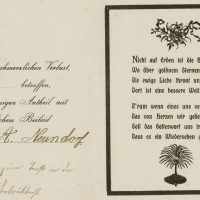 schmerzlichen Verlust,
betroffen,
nigen Antheil mit
lichem Beileid
A. Neundorf
Nicht auf Erden ist die H
Wo über goldnem Sternen
Die ewige Liebe thront un
Dort ist eine bessere Welt
D'rum wenn eines uns ve
Das von Herzen wir gelie
Soll das Gotteswort uns tr
Dass es ein Wiedersehn gi